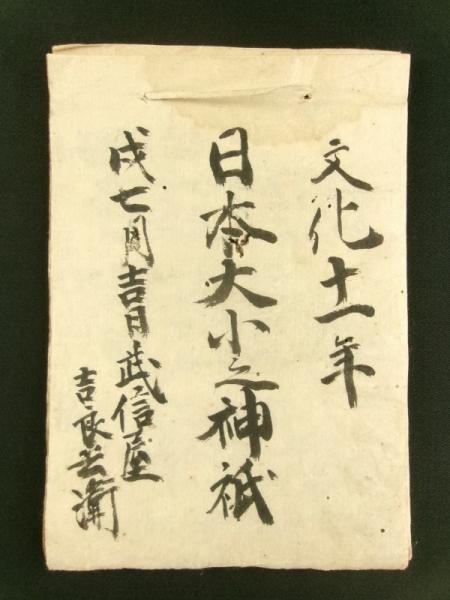 文化十一年
日本大小之神祇
戌七月吉日武信屋
吉良兵衛